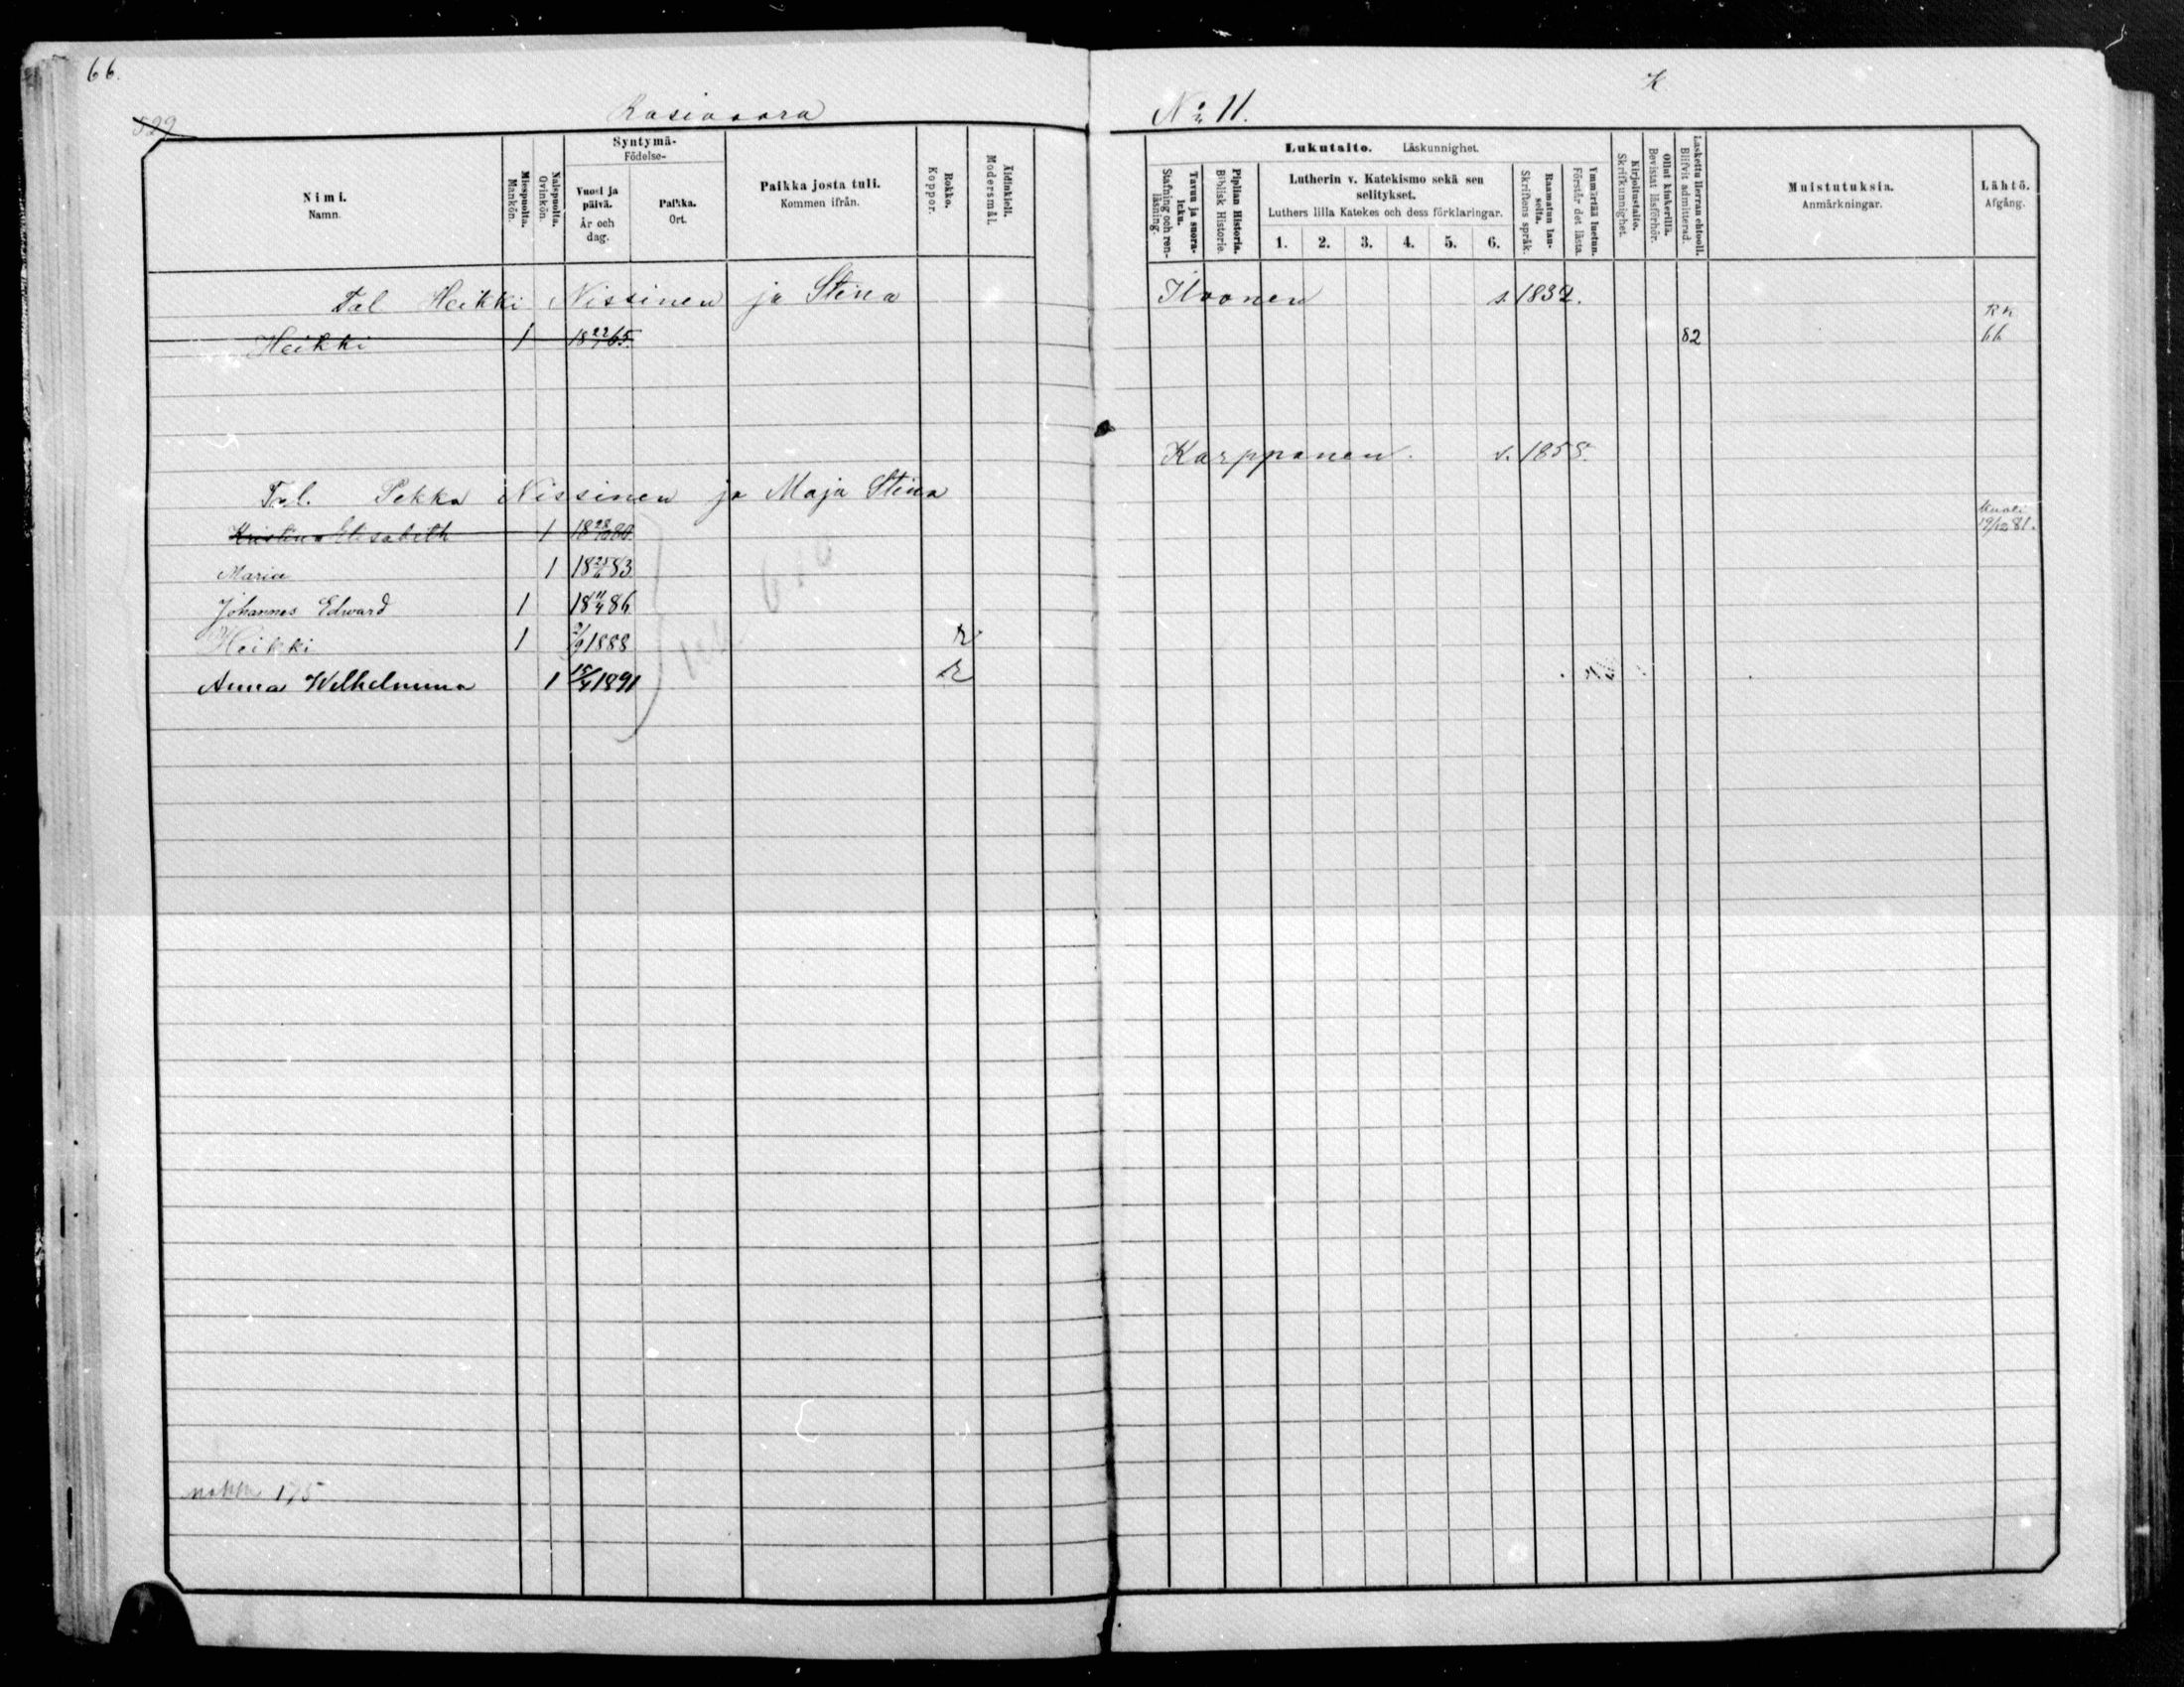 66.
529
Rasiavaara
No 11.
K
Nimi.
Namn.
Miespuolta.
Mankön.
Naispuolta.
Qvinkön.
Syntymä-
Födelse-
Vuosi ja päivä.
År och dag.
Paikka.
Ort.
Paikka josta tuli.
Kommen ifrån.
Rokko.
Koppor.
Äidinkieli.
Modersmål.
Lukutaito. Läskunnighet.
Tavuu ja suora-luku.
Stafning och ren-läsning.
Piplian Historia.
Biblisk Historie.
Lutherin v. Katekismo sekä sen selitykset.
Luthers lilla Katekes och dess förklaringar.
1. 2. 3. 4. 5. 6.
Raamatun lau-seita.
Skriftens språk.
Ymmärtää luetun.
Förstår det lästa.
Kirjoitustaito.
Skrifkunnighet.
Ollut kinkerillä.
Bevistat läsförhör.
Laskettu Herran ehtooll.
Blifvit admitterad.
Muistutuksia.
Anmärkningar.
Lähtö.
Afgång.
Tal Heikki Nissinen ja Stina Ilvonen s. 1832.
Heikki 1 18 22/1 65. 82 RK 66
Karppanen. s. 1858.
Tal. Pekka Nissinen ja Maja Stina
Kristina Elisabeth 1 18 28/10 80. Kuoli 19/12 81.
Maria 1 18 25/6 83
Johannes Edward 1 18 11/4 86
Heikki 1 2/9 1888 r
Anna Wilhelmina 1 15/4 1891 r
175